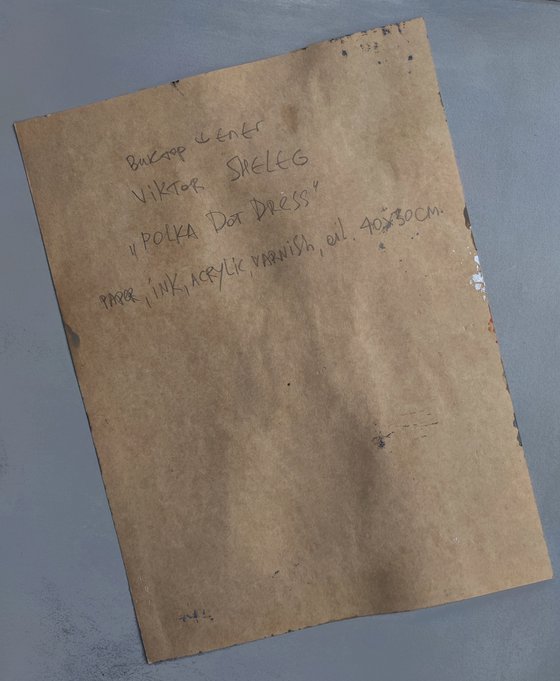 Виктор Шелег
VIKTOR SHELEG
„POLKA DOT DRESS"
PAPER, INK, ACRYLIC, VARNISH, oil. 40x30cm.